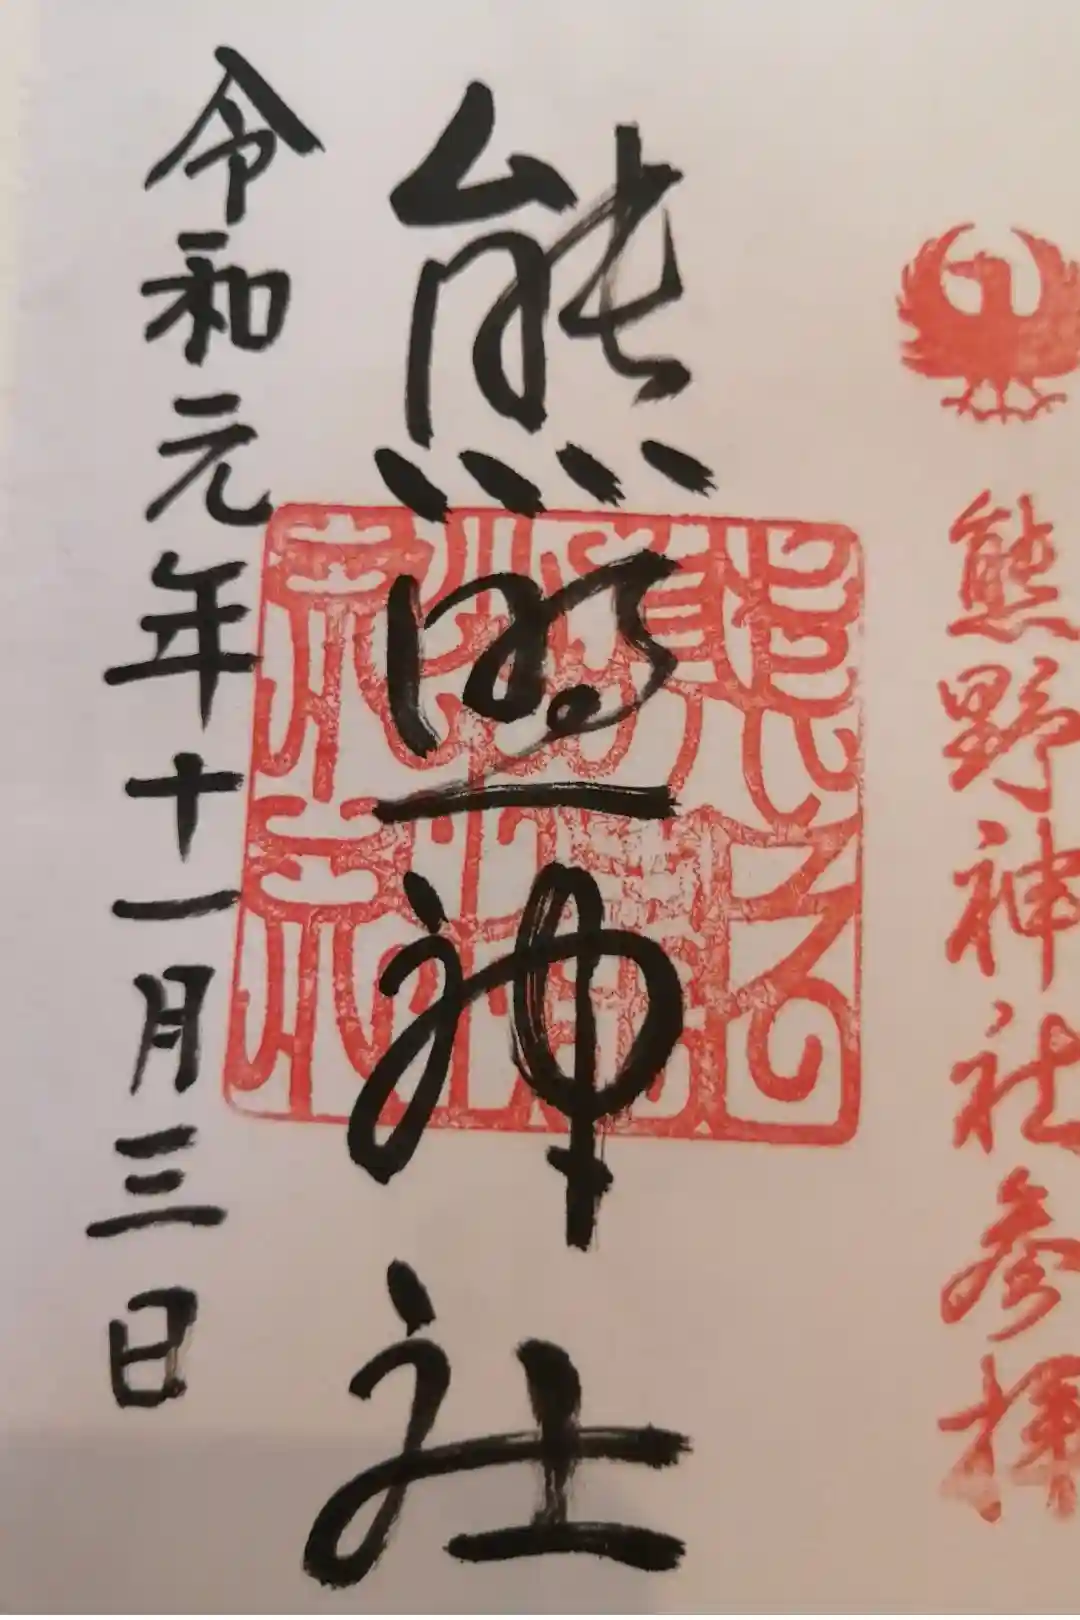 熊野神社参拝
熊野神社
令和元年十一月三日